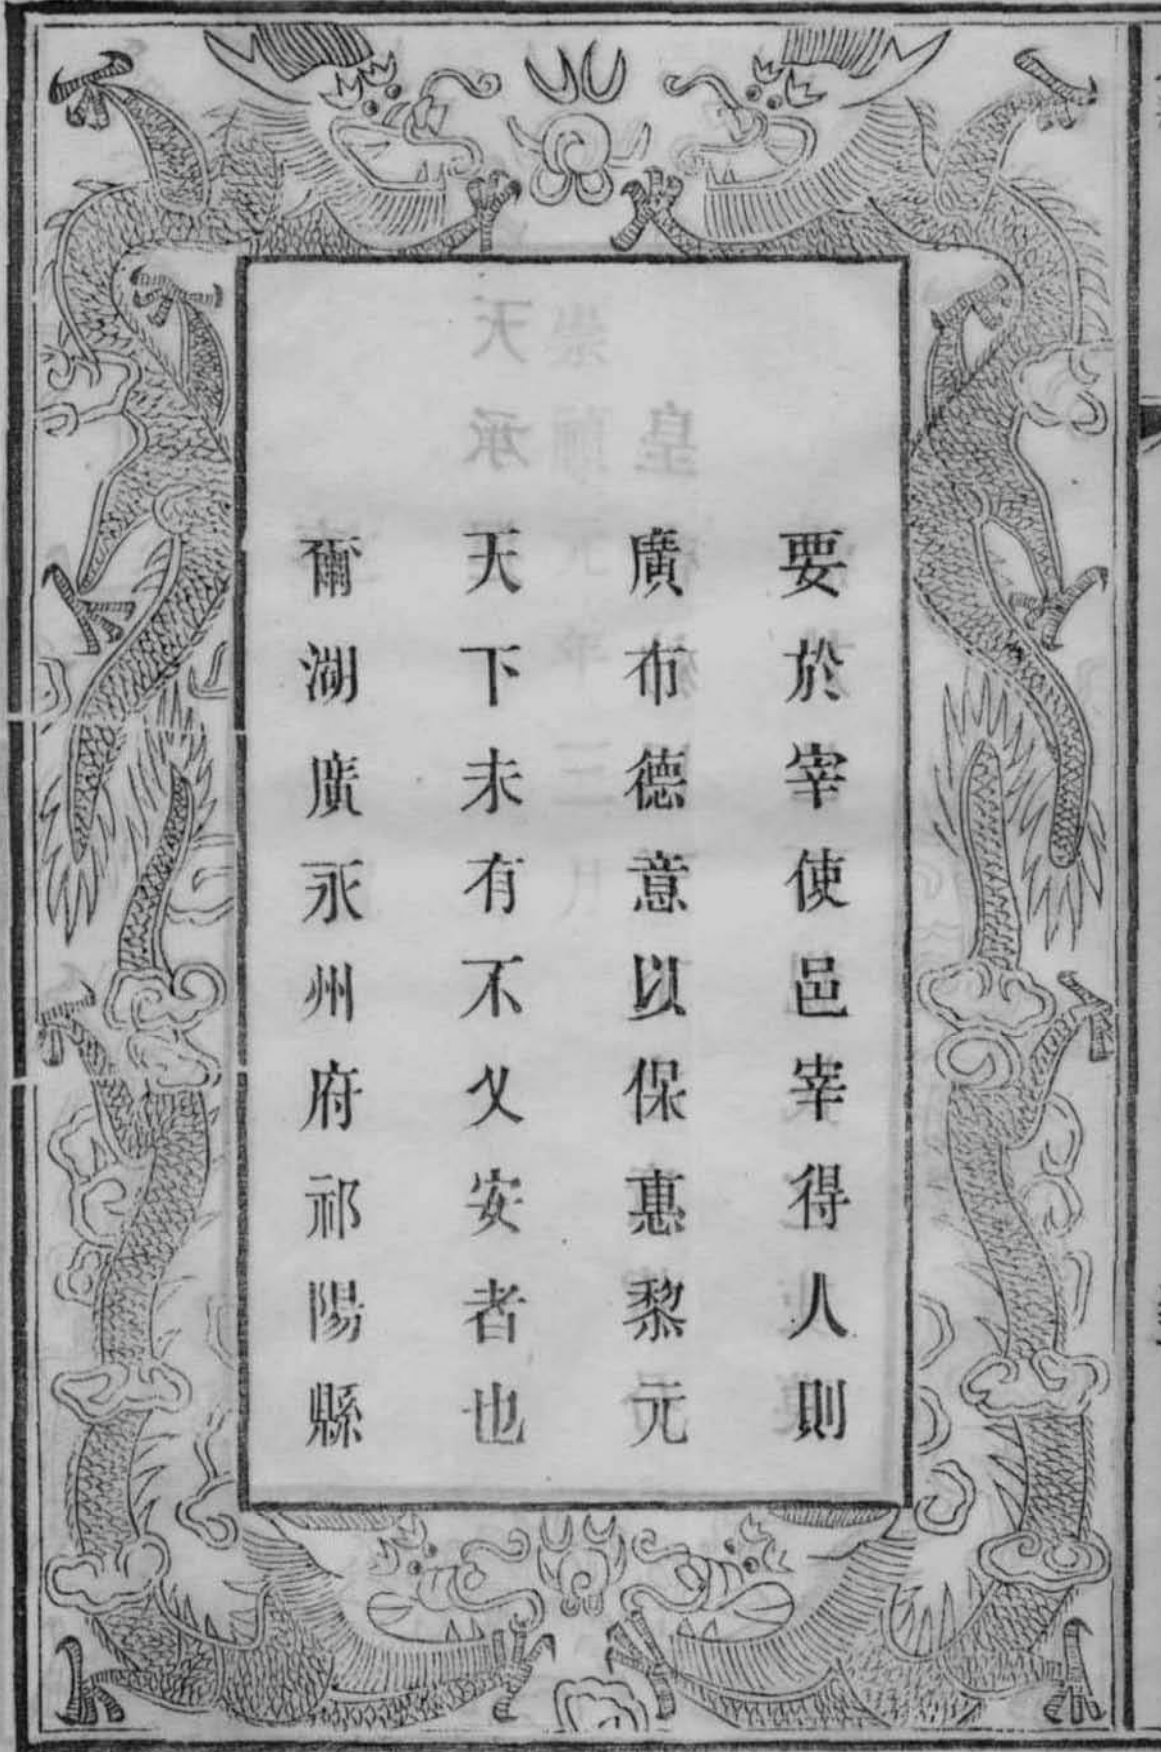 要於宰使邑宰得人則
廣布德意以保惠黎元
天下未有不乂安者也
爾湖廣永州府祁陽縣